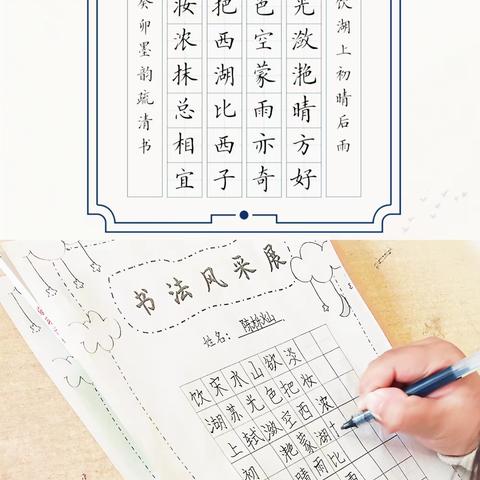 饮湖上初晴后雨
光潋滟晴方好
色空蒙雨亦奇
把西湖比西子
妆浓抹总相宜
癸卯墨韵疏清书
书法风采展
姓名：陈
饮湖上初
宋苏轼
水光潋滟晴
山色空蒙雨
欲把西湖比
淡妆浓